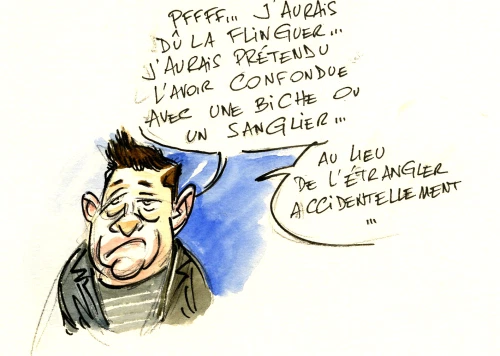 PFFFF... J'AURAIS
DÛ LA FLINGUER...
J'AURAIS PRÉTENDU
L'AVOIR CONFONDUE
AVEC UNE BICHE OU
UN SANGLIER...
AU LIEU
DE L'ÉTRANGLER
ACCIDENTELLEMENT
...